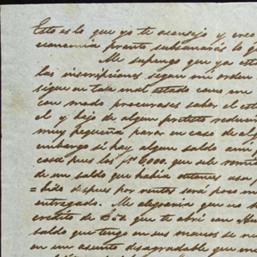 Esto es lo que yo te aconsejo y creo
economia pronto subsanarás lo
Me supongo que ya está
las inscripciones segun mi orden
sigue en tan mal estado como en
con modo procurases saber el est
él y bajo de algun pretesto reducir
muy pequeña para en caso de alg
embargo si hay algun saldo ami
casa pues los 6000. que se le remit
de un saldo que habia antes
despues por ventas será poco
entregado. Me alegraria que no
credito de que te abri con
saldo que tengo en sus manos
en un asunto desagradable que me